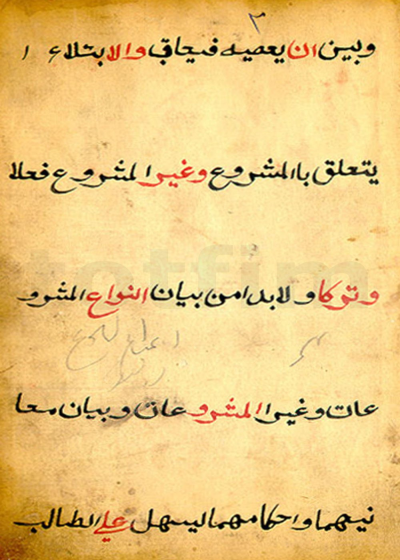 ٣
وبين ان يعصيه فيعاقب والابتلاء ا
يتعلق باالمشروع وغير المشروع فعلا
وتركا ولا بدا من بيان النواع المشرو
عات وغير المشروعات وبيان معا
نيهما واحكامهما ليسهل علي الطالب